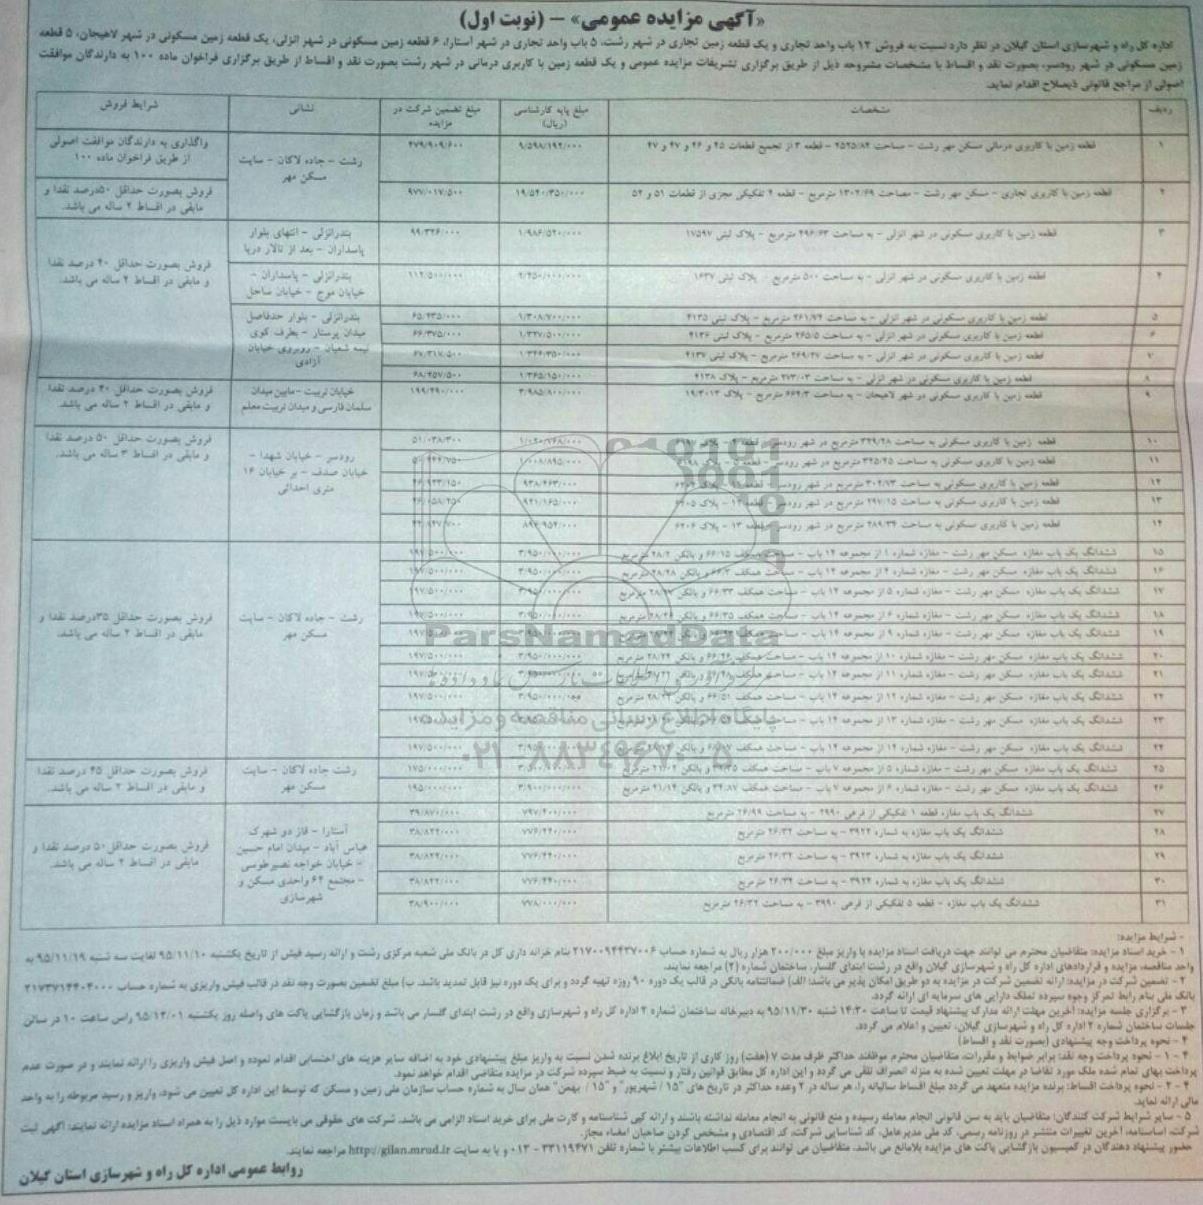 «آگهی مزایده عمومی» – (نوبت اول)
اداره کل راه و شهرسازی استان گیلان در نظر دارد نسبت به فروش ۱۲ باب واحد تجاری و یک قطعه زمین تجاری در شهر رشت، ۵ باب واحد تجاری در شهر آستارا، ۶ قطعه زمین مسکونی در شهر انزلی، یک قطعه زمین مسکونی در شهر لاهیجان، ۵ قطعه
زمین مسکونی در شهر رودسر، بصورت نقد و اقساط با مشخصات مشروحه ذیل از طریق برگزاری تشریفات مزایده عمومی و یک قطعه زمین با کاربری درمانی در شهر رشت بصورت نقد و اقساط از طریق برگزاری فراخوان ماده ۱۰۰ به دارندگان موافقت
اصولی از مراجع قانونی ذیصلاح اقدام نماید.
ردیف مشخصات مبلغ پایه کارشناسی (ریال) مبلغ تضمین شرکت در مزایده نشانی شرایط فروش
۱ قطعه زمین با کاربری درمانی مسکن مهر رشت – مساحت ۲۵۲۵/۸۴ – قطعه ۳ از تجمیع قطعات ۴۵ و ۴۶ و ۴۷ و ۴۷ ۹/۵۹۸/۱۹۲/۰۰۰ ۴۷۹/۹۰۹/۶۰۰
رشت – جاده لاکان – سایت مسکن مهر
واگذاری به دارندگان موافقت اصولی از طریق فراخوان ماده ۱۰۰
۲ قطعه زمین با کاربری تجاری – مسکن مهر رشت – مساحت ۱۳۰۲/۶۹ مترمربع – قطعه ۲ تفکیکی مجزی از قطعات ۵۱ و ۵۲ ۱۹/۵۴۰/۳۵۰/۰۰۰ ۹۷۷/۰۱۷/۵۰۰
فروش بصورت حداقل ۵۰درصد نقدا و مابقی در اقساط ۲ ساله می باشد.
۳ قطعه زمین با کاربری مسکونی در شهر انزلی – به مساحت ۴۹۶/۶۳ مترمربع – پلاک ثبتی ۱۷۵۹۷ ۱/۹۸۶/۵۲۰/۰۰۰ ۹۹/۳۲۶/۰۰۰
بندرانزلی – انتهای بلوار پاسداران – بعد از تالار دریا
فروش بصورت حداقل ۴۰ درصد نقدا و مابقی در اقساط ۲ ساله می باشد.
۴ قطعه زمین با کاربری مسکونی در شهر انزلی – به مساحت ۵۰۰ مترمربع – پلاک ثبتی ۱۶۳۷ ۲/۲۵۰/۰۰۰/۰۰۰ ۱۱۲/۵۰۰/۰۰۰
بندرانزلی – پاسداران – خیابان موج – خیابان ساحل
۵ قطعه زمین با کاربری مسکونی در شهر انزلی – به مساحت ۲۶۱/۷۴ مترمربع – پلاک ثبتی ۴۱۳۵ ۱/۳۰۸/۷۰۰/۰۰۰ ۶۵/۴۳۵/۰۰۰
۶ قطعه زمین با کاربری مسکونی در شهر انزلی – به مساحت ۲۶۵/۵ مترمربع – پلاک ثبتی ۴۱۳۶ ۱/۳۲۷/۵۰۰/۰۰۰ ۶۶/۳۷۵/۰۰۰
۷ قطعه زمین با کاربری مسکونی در شهر انزلی – به مساحت ۲۶۹/۲۷ مترمربع – پلاک ثبتی ۴۱۳۷ ۱/۳۴۶/۳۵۰/۰۰۰ ۶۷/۳۱۷/۵۰۰
۸ قطعه زمین با کاربری مسکونی در شهر انزلی – به مساحت ۲۷۳/۰۳ مترمربع – پلاک ۴۱۳۸ ۱/۳۶۵/۱۵۰/۰۰۰ ۶۸/۲۵۷/۵۰۰
بندرانزلی – بلوار حدفاصل میدان پرستار – بطرف کوی نیمه شعبان – روبروی خیابان آزادی
۹ قطعه زمین با کاربری مسکونی در شهر لاهیجان – به مساحت ۶۶۴/۳ مترمربع – پلاک ۱۹/۳۰۱۳ ۳/۹۸۵/۸۰۰/۰۰۰ ۱۹۹/۲۹۰/۰۰۰
خیابان تربیت – مابین میدان سلمان فارسی و میدان تربیت معلم
فروش بصورت حداقل ۴۰ درصد نقدا و مابقی در اقساط ۲ ساله می باشد.
۱۰ قطعه زمین با کاربری مسکونی به مساحت ۳۲۹/۲۸ مترمربع در شهر رودسر – قطعه ۱/۰۲۰/۷۶۸/۰۰۰ ۵۱/۰۳۸/۳۰۰
۱۱ قطعه زمین با کاربری مسکونی به مساحت ۳۲۵/۴۵ مترمربع در شهر رودسر – قطعه ۵ – پلاک ۱/۰۰۸/۸۹۵/۰۰۰
۱۲ قطعه زمین با کاربری مسکونی به مساحت ۳۰۲/۷۳ مترمربع در شهر رودسر – قطعه ۹۳۸/۴۶۳/۰۰۰ ۴۶/۹۲۳/۱۵۰
۱۳ قطعه زمین با کاربری مسکونی به مساحت ۲۹۷/۱۵ مترمربع در شهر رودسر – قطعه ۱۲ – پلاک ۶۲۰۵ ۹۲۱/۱۶۵/۰۰۰
۱۴ قطعه زمین با کاربری مسکونی به مساحت ۲۸۹/۳۴ مترمربع در شهر رودسر – قطعه ۱۳ – پلاک ۶۲۰۶ ۸۹۶/۹۵۴/۰۰۰
رودسر – خیابان شهدا – خیابان صدف – بر خیابان ۱۶ متری احداثی
فروش بصورت حداقل ۵۰ درصد نقدا و مابقی در اقساط ۳ ساله می باشد.
۱۵ ششدانگ یک باب مغازه مسکن مهر رشت – مغازه شماره ۱ از مجموعه ۱۴ باب – مساحت همکف ۶۶/۱۵ و بالکن ۲۸/۲ مترمربع ۳/۹۵۰/۰۰۰/۰۰۰ ۱۹۷/۵۰۰/۰۰۰
۱۶ ششدانگ یک باب مغازه مسکن مهر رشت – مغازه شماره ۴ از مجموعه ۱۴ باب – مساحت همکف ۶۶/۳ و بالکن ۲۸/۲۸ مترمربع ۳/۹۵۰/۰۰۰/۰۰۰ ۱۹۷/۵۰۰/۰۰۰
۱۷ ششدانگ یک باب مغازه مسکن مهر رشت – مغازه شماره ۵ از مجموعه ۱۴ باب – مساحت همکف ۶۶/۳۳ و بالکن ۲۸/۲۷ مترمربع ۳/۹۵۰/۰۰۰/۰۰۰ ۱۹۷/۵۰۰/۰۰۰
۱۸ ششدانگ یک باب مغازه مسکن مهر رشت – مغازه شماره ۶ از مجموعه ۱۴ باب – مساحت همکف ۶۶/۳۵ و بالکن مترمربع ۳/۹۵۰/۰۰۰/۰۰۰ ۱۹۷/۵۰۰/۰۰۰
۱۹ ششدانگ یک باب مغازه مسکن مهر رشت – مغازه شماره ۹ از مجموعه ۱۴ باب – مساحت
۲۰ ششدانگ یک باب مغازه مسکن مهر رشت – مغازه شماره ۱۰ از مجموعه ۱۴ باب – مساحت همکف ۶۶/۴۶ و بالکن ۲۸/۲۴ مترمربع ۳/۹۵۰/۰۰۰/۰۰۰ ۱۹۷/۵۰۰/۰۰۰
۲۱ ششدانگ یک باب مغازه مسکن مهر رشت – مغازه شماره ۱۱ از مجموعه ۱۴ باب – مساحت
۲۲ ششدانگ یک باب مغازه مسکن مهر رشت – مغازه شماره ۱۲ از مجموعه ۱۴ باب – مساحت همکف ۶۶/۵۱ و بالکن مترمربع ۳/۹۵۰/۰۰۰/۰۰۰ ۱۹۷/۵۰۰/۰۰۰
۲۳ ششدانگ یک باب مغازه مسکن مهر رشت – مغازه شماره ۱۳ از مجموعه ۱۴ باب – مساحت
۲۴ ششدانگ یک باب مغازه مسکن مهر رشت – مغازه شماره ۱۴ از مجموعه ۱۴ باب – مساحت همکف ۱۹۷/۵۰۰/۰۰۰
رشت – جاده لاکان – سایت مسکن مهر
فروش بصورت حداقل ۳۵درصد نقدا و مابقی در اقساط ۲ ساله می باشد.
۲۵ ششدانگ یک باب مغازه مسکن مهر رشت – مغازه شماره ۵ از مجموعه ۷ باب – مساحت همکف و بالکن مترمربع ۳/۵۰۰/۰۰۰/۰۰۰ ۱۷۵/۰۰۰/۰۰۰
۲۶ ششدانگ یک باب مغازه مسکن مهر رشت – مغازه شماره ۶ از مجموعه ۷ باب – مساحت همکف ۳۴/۸۷ و بالکن ۲۱/۱۴ مترمربع ۳/۹۰۰/۰۰۰/۰۰۰ ۱۹۵/۰۰۰/۰۰۰
رشت جاده لاکان – سایت مسکن مهر
فروش بصورت حداقل ۴۵ درصد نقدا و مابقی در اقساط ۲ ساله می باشد.
۲۷ ششدانگ یک باب مغازه، قطعه ۱ تفکیکی از فرعی ۲۹۹۰ – به مساحت ۲۶/۹۹ مترمربع ۷۹۷/۴۰۰/۰۰۰ ۳۹/۸۷۰/۰۰۰
۲۸ ششدانگ یک باب مغازه به شماره ۳۹۲۲ – به مساحت ۲۶/۳۲ مترمربع ۷۷۶/۴۴۰/۰۰۰ ۳۸/۸۲۲/۰۰۰
۲۹ ششدانگ یک باب مغازه به شماره ۳۹۲۳ – به مساحت ۲۶/۳۲ مترمربع ۷۷۶/۴۴۰/۰۰۰ ۳۸/۸۲۲/۰۰۰
۳۰ ششدانگ یک باب مغازه به شماره ۳۹۲۴ – به مساحت ۲۶/۳۲ مترمربع ۷۷۶/۴۴۰/۰۰۰ ۳۸/۸۲۲/۰۰۰
۳۱ ششدانگ یک باب مغازه – قطعه ۵ تفکیکی از فرعی ۳۹۹۰ – به مساحت ۲۶/۳۲ مترمربع ۷۷۸/۰۰۰/۰۰۰ ۳۸/۹۰۰/۰۰۰
آستارا – فاز دو شهرک عباس آباد – میدان امام حسین – خیابان خواجه نصیرطوسی – مجتمع ۶۴ واحدی مسکن و شهرسازی
فروش بصورت حداقل۵۰ درصد نقدا و مابقی در اقساط ۲ ساله می باشد.
ParsNamadData
پایگاه اطلاع رسانی مناقصه و مزایده
۰۲۱-۸۸۳۴۹۶۷۰-۵
- شرایط مزایده:
۱ – خرید اسناد مزایده: متقاضیان محترم می توانند جهت دریافت اسناد مزایده با واریز مبلغ ۲۰۰/۰۰۰ هزار ریال به شماره حساب ۲۱۷۰۰۹۴۴۳۷۰۰۶ بنام خزانه داری کل در بانک ملی شعبه مرکزی رشت و ارائه رسید فیش از تاریخ یکشنبه ۹۵/۱۱/۱۰ لغایت سه شنبه ۹۵/۱۱/۱۹ به
واحد مناقصه، مزایده و قراردادهای اداره کل راه و شهرسازی گیلان واقع در رشت ابتدای گلسار، ساختمان شماره (۲) مراجعه نمایند.
۲ – تضمین شرکت در مزایده: ارائه تضمین شرکت در مزایده به دو طریق امکان پذیر می باشد: الف) ضمانتنامه بانکی در قالب یک دوره ۹۰ روزه تهیه گردد و برای یک دوره نیز قابل تمدید باشد. ب) مبلغ تضمین بصورت وجه نقد در قالب فیش واریزی به شماره حساب ۲۱۷۳۷۱۴۴۰۴۰۰۰
بانک ملی بنام رابط تمرکز وجوه سپرده تملک دارایی های سرمایه ای ارائه گردد.
۳ – برگزاری جلسه مزایده: آخرین مهلت ارائه مدارک پیشنهاد قیمت تا ساعت ۱۴:۳۰ شنبه ۹۵/۱۱/۳۰ به دبیرخانه ساختمان شماره ۲ اداره کل راه و شهرسازی واقع در رشت ابتدای گلسار می باشد و زمان بازگشایی پاکت های واصله روز یکشنبه ۹۵/۱۲/۰۱ راس ساعت ۱۰ در سالن
جلسات ساختمان شماره ۲ اداره کل راه و شهرسازی گیلان، تعیین و اعلام می گردد.
۴ – نحوه پرداخت وجه پیشنهادی (بصورت نقد و اقساط)
۴ – ۱ – نحوه پرداخت وجه نقد: برابر ضوابط و مقررات، متقاضیان محترم موظفند حداکثر ظرف مدت ۷ (هفت) روز کاری از تاریخ ابلاغ برنده شدن نسبت به واریز مبلغ پیشنهادی خود به اضافه سایر هزینه های احتسابی اقدام نموده و اصل فیش واریزی را ارائه نمایند و در صورت عدم
پرداخت بهای تمام شده ملک مورد تقاضا در مهلت تعیین شده به منزله انصراف تلقی می گردد و این اداره کل مطابق قوانین رفتار و نسبت به ضبط سپرده شرکت در مزایده متقاضی اقدام خواهد نمود.
۴ – ۲ – نحوه پرداخت اقساط: برنده مزایده متعهد می گردد مبلغ اقساط سالیانه را، هر ساله در ۲ وعده حداکثر در تاریخ های "۱۵ / شهریور" و "۱۵ / بهمن" همان سال به شماره حساب سازمان ملی زمین و مسکن که توسط این اداره کل تعیین می شود، واریز و رسید مربوطه را به واحد
مالی ارائه نماید.
۵ – سایر شرایط شرکت کنندگان: متقاضیان باید به سن قانونی انجام معامله رسیده و منع قانونی به انجام معامله نداشته باشند و ارائه کپی شناسنامه و کارت ملی برای خرید اسناد الزامی می باشد. شرکت های حقوقی می بایست موارد ذیل را به همراه اسناد مزایده ارائه نمایند: آگهی ثبت
شرکت، اساسنامه، آخرین تغییرات منتشر در روزنامه رسمی، کد ملی مدیرعامل، کد شناسایی شرکت، کد اقتصادی و مشخص کردن صاحبان امضاء مجاز.
حضور پیشنهاد دهندگان در کمیسیون بازگشایی پاکت های مزایده بلامانع می باشد. متقاضیان می توانند برای کسب اطلاعات بیشتر با شماره تلفن ۳۳۱۱۹۴۷۱ – ۰۱۳ و یا به سایت http://gilan.mrud.ir مراجعه نمایند.
روابط عمومی اداره کل راه و شهرسازی استان گیلان